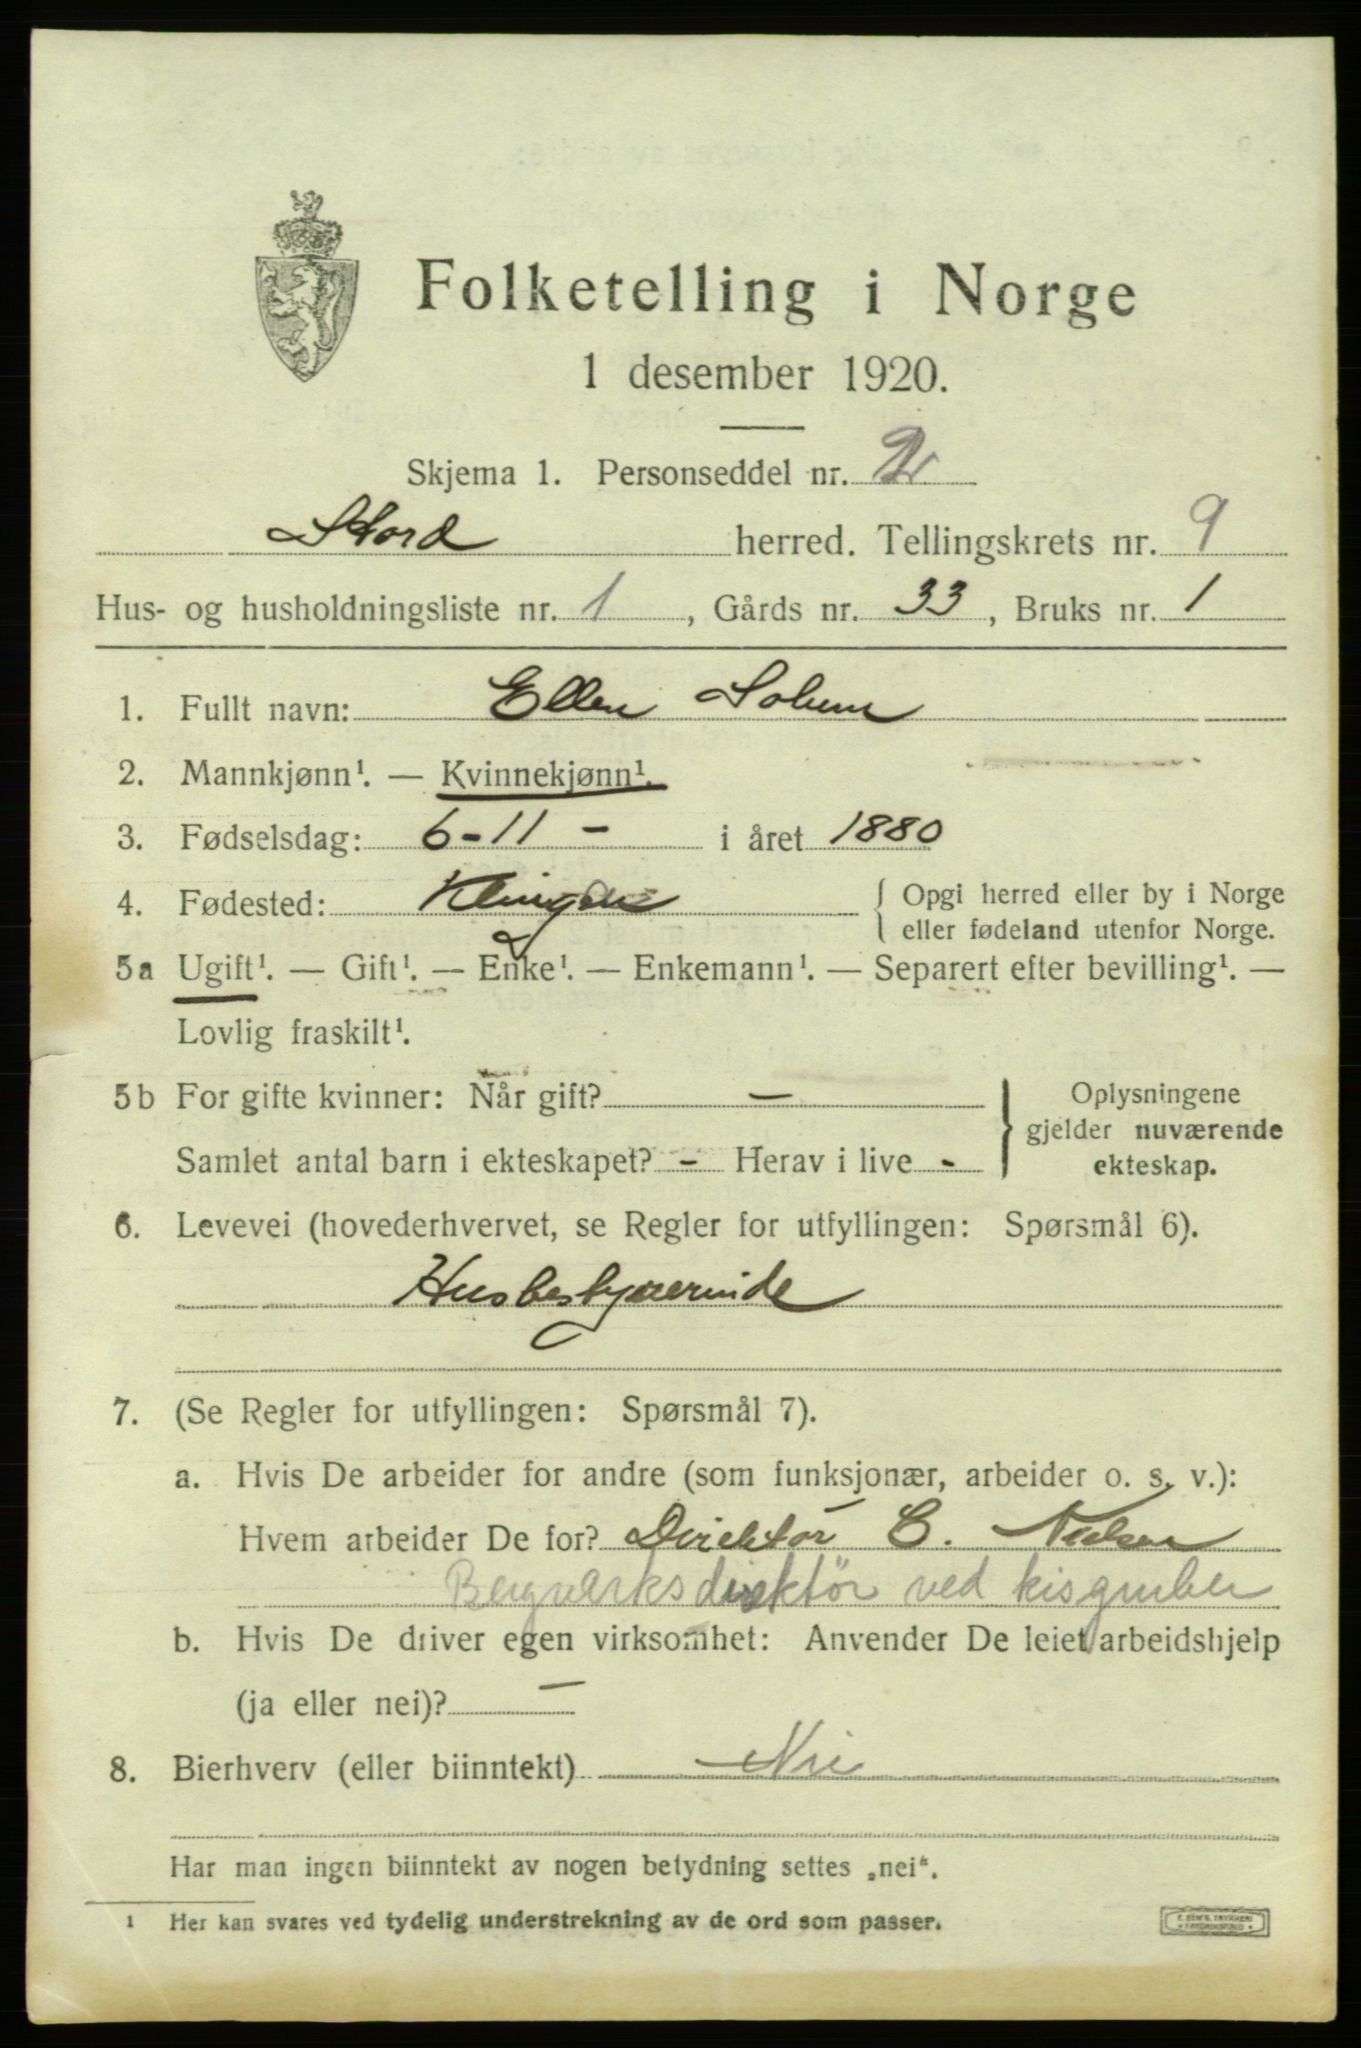 Folketelling i Norge
1 desember 1920.
Skjema 1. Personseddel nr. 2
Stord herred. Tellingskrets nr. 9
Hus- og husholdningsliste nr. 1, Gårds nr. 33, Bruks nr. 1
1. Fullt navn: Ellen Solem
2. Mannkjønn¹. — Kvinnekjønn¹.
3. Fødselsdag: 6-11- i året 1880
4. Fødested: Klingen { Opgi herred eller by i Norge
eller fødeland utenfor Norge.
5a Ugift¹. — Gift¹. — Enke¹. — Enkemann¹. — Separert efter bevilling¹. —
Lovlig fraskilt¹.
5b For gifte kvinner: Når gift? — } Oplysningene
gjelder nuværende
Samlet antal barn i ekteskapet? - Herav i live - ekteskap.
6. Levevei (hovederhvervet, se Regler for utfyllingen: Spørsmål 6).
Husbestyrerinde
7. (Se Regler for utfyllingen: Spørsmål 7).
a. Hvis De arbeider for andre (som funksjonær, arbeider o. s. v.):
Hvem arbeider De for? Direktør C. Nielsen
Bergverksdirektör ved kisgruber
b. Hvis De driver egen virksomhet: Anvender De leiet arbeidshjelp
(ja eller nei)? —
8. Bierhverv (eller biinntekt) Nei
Har man ingen biinntekt av nogen betydning settes „nei“.
¹ Her kan svares ved tydelig understrekning av de ord som passer.